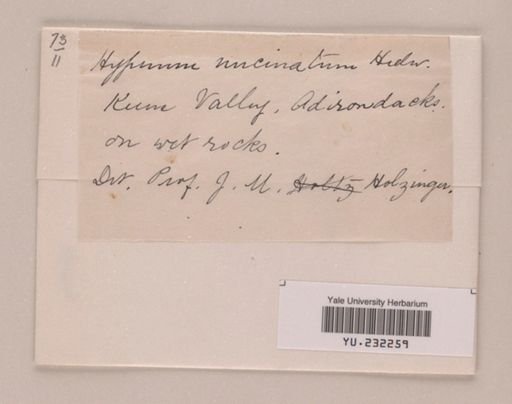 73
11
Hypnum uncinatum Hedw.
Keene Valley, Adirondacks.
on wet rocks.
Det. Prof. J. M. Holtz Holzinger.
Yale University Herbarium
YU.232259